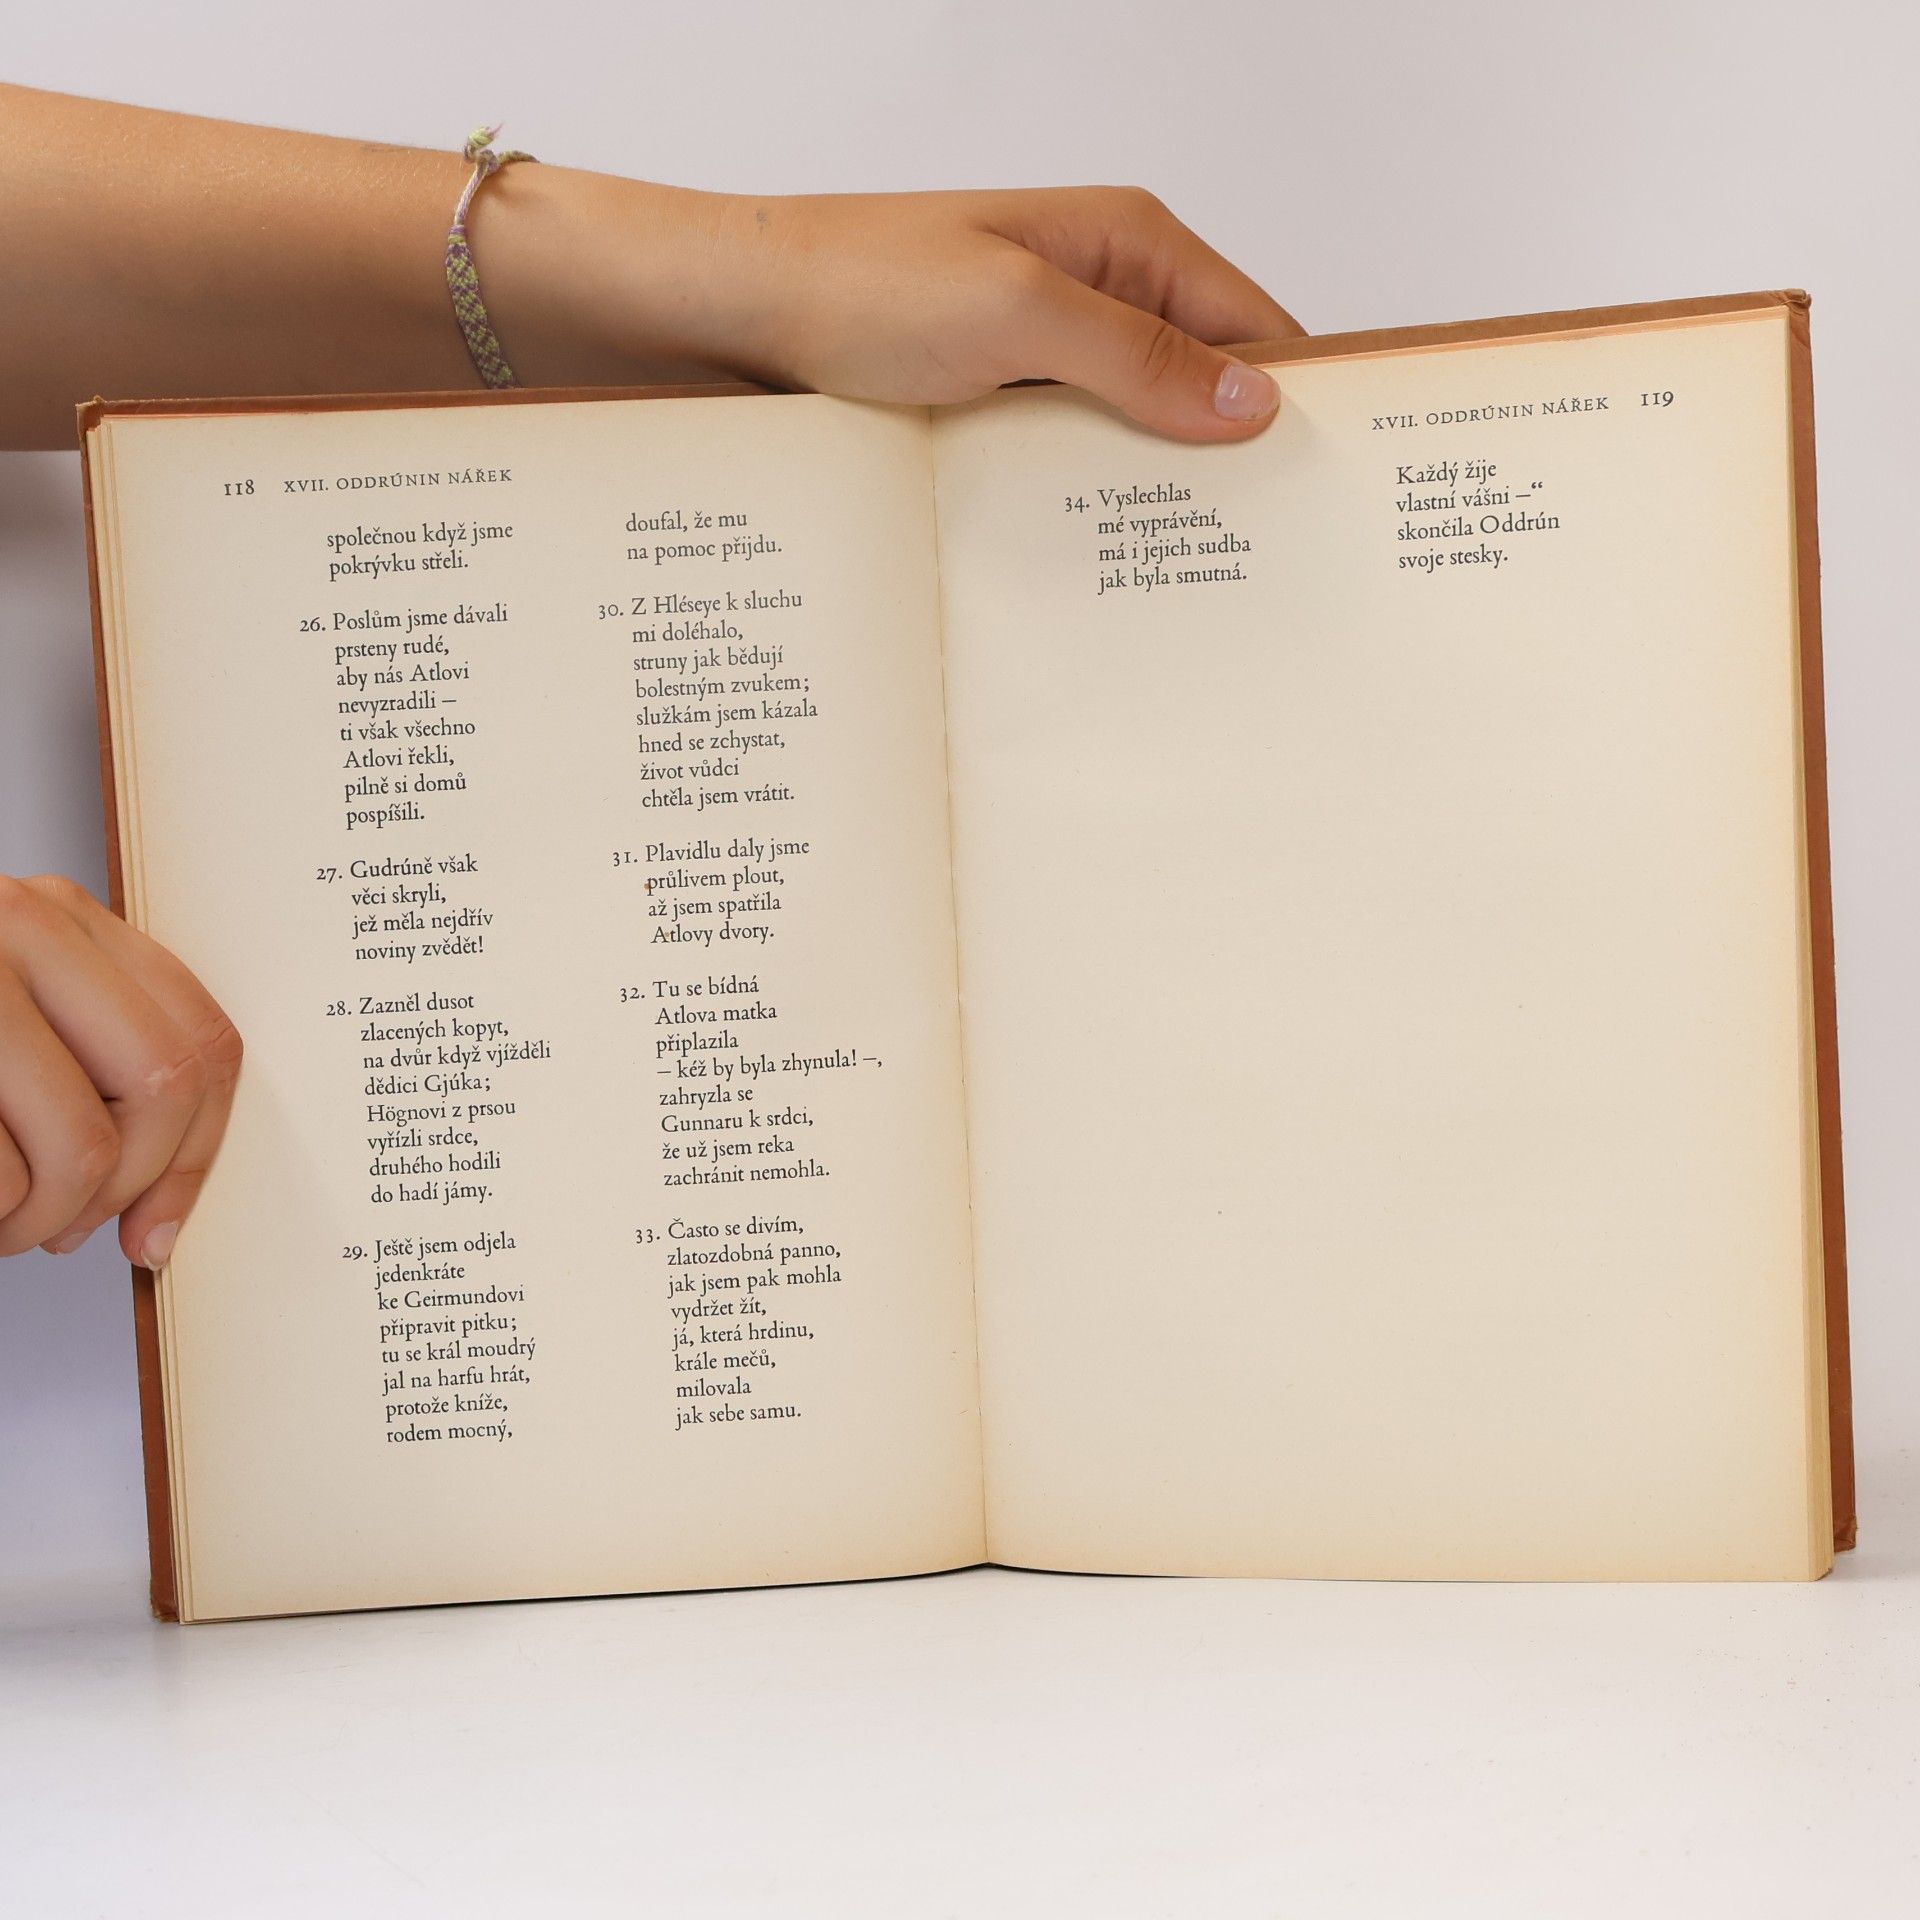 118 XVII. ODDRÚNIN NÁŘEK
společnou když jsme
pokrývku střeli.
26. Poslům jsme dávali
prsteny rudé,
aby nás Atlovi
nevyzradili –
ti však všechno
Atlovi řekli,
pilně si domů
pospíšili.
27. Gudrúně však
věci skryli,
jež měla nejdřív
noviny zvědět!
28. Zazněl dusot
zlacených kopyt,
na dvůr když vjížděli
dědici Gjúka;
Högnovi z prsou
vyřízli srdce,
druhého hodili
do hadí jámy.
29. Ještě jsem odjela
jedenkráte
ke Geirmundovi
připravit pitku;
tu se král moudrý
jal na harfu hrát,
protože kníže,
rodem mocný,
doufal, že mu
na pomoc přijdu.
30. Z Hléseye k sluchu
mi doléhalo,
struny jak bědují
bolestným zvukem;
služkám jsem kázala
hned se zchystat,
život vůdci
chtěla jsem vrátit.
31. Plavidlu daly jsme
průlivem plout,
až jsem spatřila
Atlovy dvory.
32. Tu se bídná
Atlova matka
připlazila
– kéž by byla zhynula! –,
zahryzla se
Gunnaru k srdci,
že už jsem reka
zachránit nemohla.
33. Často se divím,
zlatozdobná panno,
jak jsem pak mohla
vydržet žít,
já, která hrdinu,
krále mečů,
milovala
jak sebe samu.
XVII. ODDRÚNIN NÁŘEK 119
34. Vyslechlas
mé vyprávění,
má i jejich sudba
jak byla smutná.
Každý žije
vlastní vášni –“
skončila Oddrún
svoje stesky.